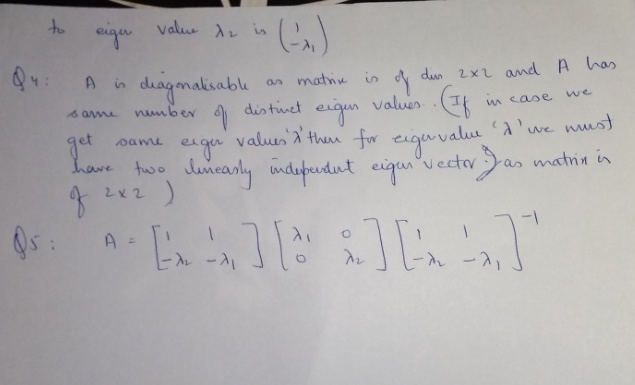 to eigen value λ₂ is (1 -λ₁)
Q4: A is diagonalisable as matrix is of dim 2x2 and A has
same number of distinct eigen values. (If in case we
get same eigen values 'λ' then for eigenvalue 'λ' we must
have two linearly independent eigen vector.) as matrix is
of 2x2 )
Q5: A = [1 1 -λ₂ -λ₁] [λ₁ 0 0 λ₂] [1 1 -λ₂ -λ₁]⁻¹